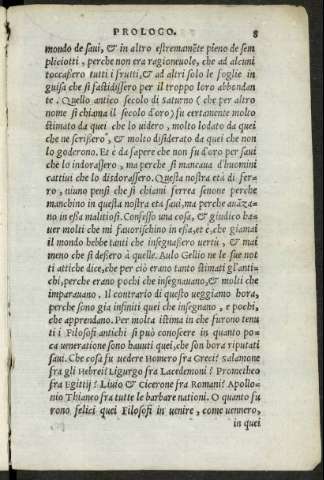 PROLOGO. 8
mondo de saui, & in altro estremamēte pieno de sem
pliciotti, perche non era ragioneuole, che ad alcuni
toccassero tutti i frutti, & ad altri solo le foglie in
guisa che si fastidissero per il troppo loro abbondan
te. Quello antico secolo di Saturno (che per altro
nome si chiana il secolo d'oro) fu certamente molto
stimato da quei che lo uidero, molto lodato da quei
che ne scrissero, & molto disiderato da quei che non
lo goderono. Et è da sapere che non fu d'oro per saui
che lo indorassero, ma perche si mancaua d'huomini
cattiui che lo disdorassero. Questa nostra età di fer-
ro, niuno pensi che si chiani ferrea senone perche
manchino in questa nostra età saui, ma perche auāza-
no in essa malitiosi. Confesso una cosa, & giudico ha-
uer molti che mi fauorischino in essa, et è, che giamai
il mondo hebbe tanti che insegnassero uertù, & mai
meno che si dessero à quelle. Aulo Gellio ne le sue not
ti attiche dice, che per ciò erano tanto stimati gl'anti-
chi, perche erano pochi che insegnauano, & molti che
imparauano. Il contrario di questo ueggiamo hora,
perche sono gia infiniti quei che insegnano, e pochi,
che apprendano. Per molta istima in che furono tenu
ti i Filosofi antichi si può conoscere in quanto po-
ca ueneratione sono hauuti quei, che son hora riputati
saui. Che cosa fu uedere Homero fra Greci? Salamone
fra gli Hebrei? Ligurgo fra Lacedemoni? Prometheo
fra Egittij? Liuio & Cicerone fra Romani? Apollo-
nio Thianeo fra tutte le barbare nationi. O quanto fu
rono felici quei Filosofi in uenire, come uennero,
in quei